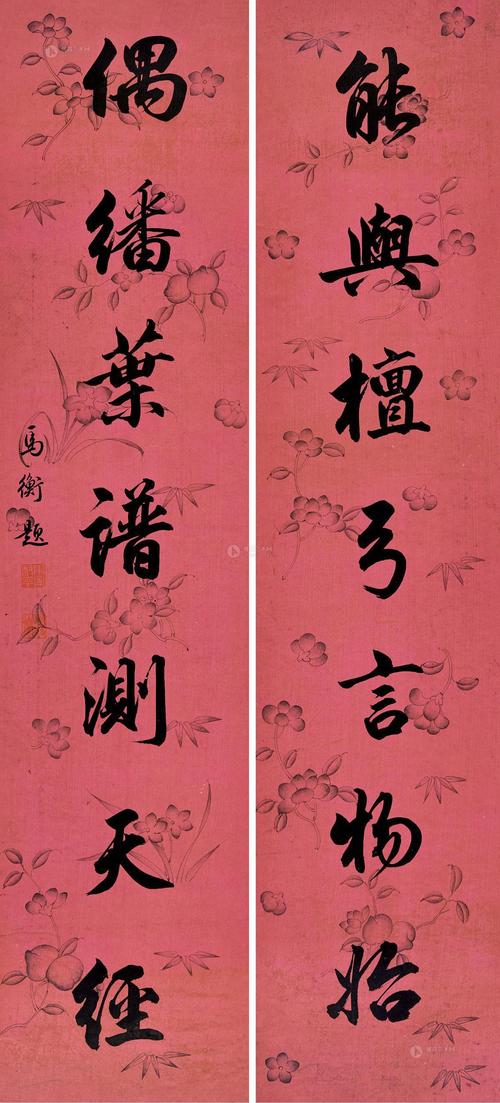 能與檀弓言物始
偶繙葉譜測天經
馬衡題